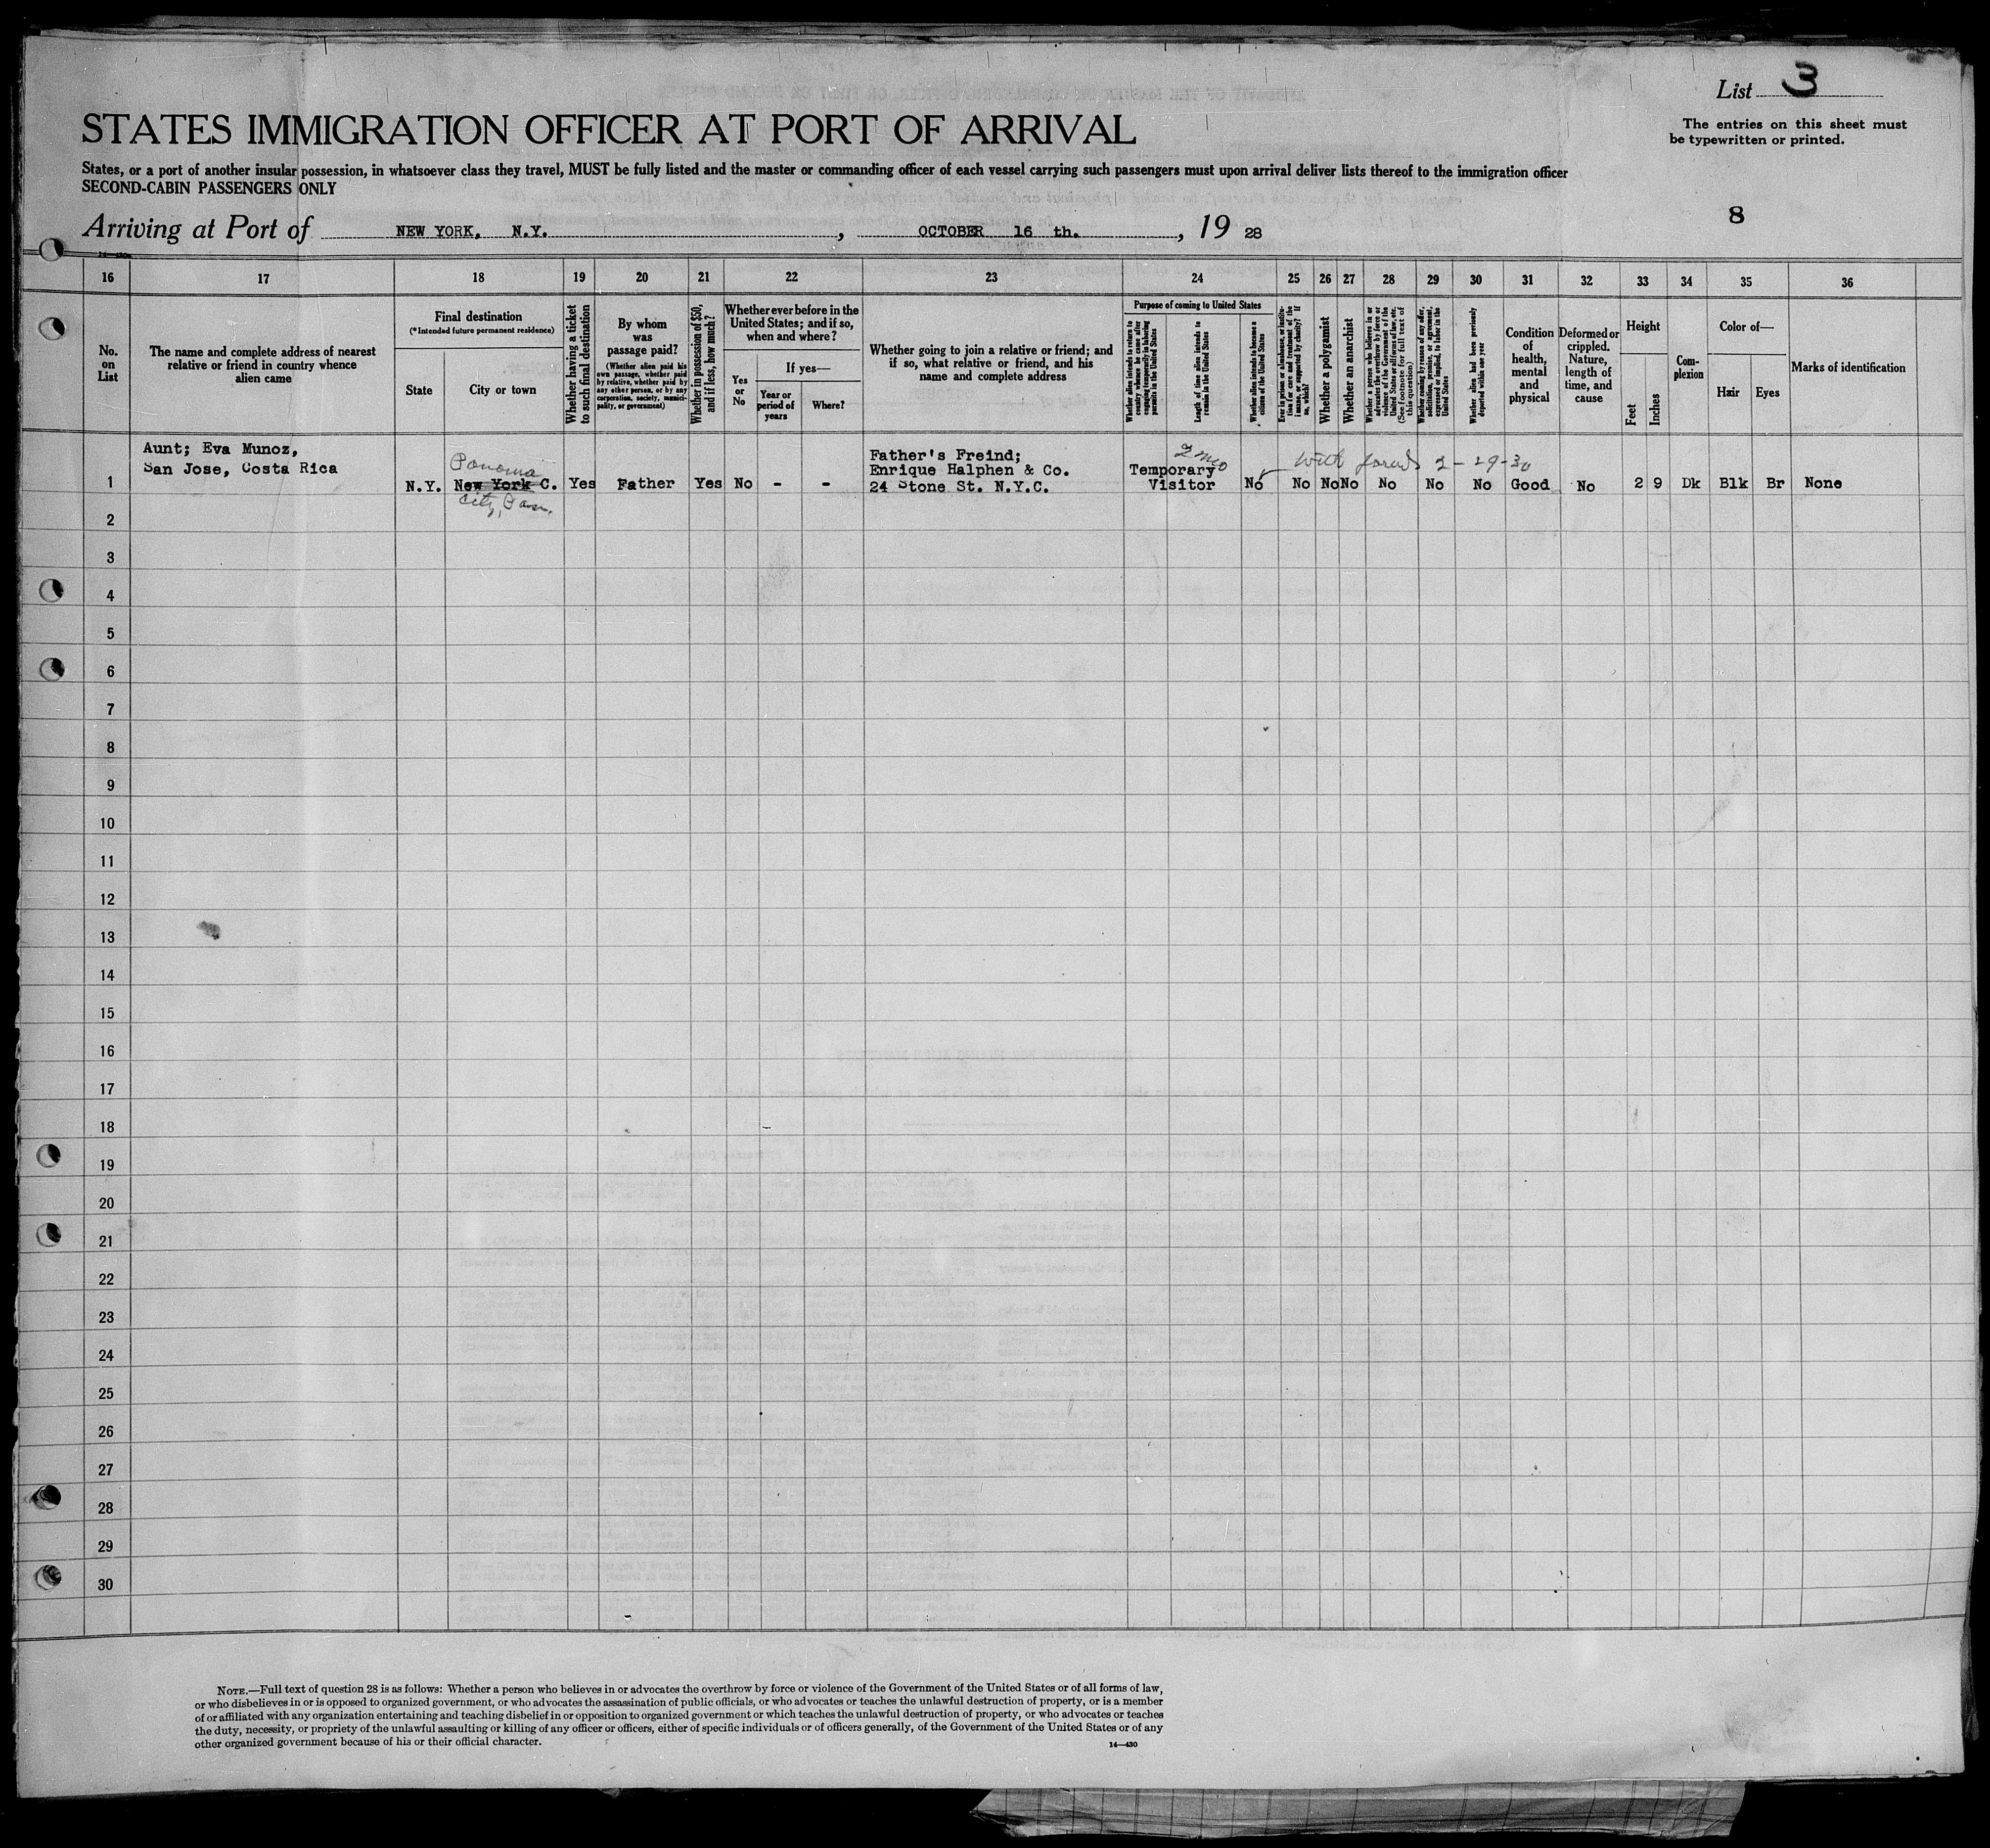 List 3
The entries on this sheet must
be typewritten or printed.
STATES IMMIGRATION OFFICER AT PORT OF ARRIVAL
States, or a port of another insular possession, in whatsoever class they travel, MUST be fully listed and the master or commanding officer of each vessel carrying such passengers must upon arrival deliver lists thereof to the immigration officer
SECOND-CABIN PASSENGERS ONLY
8
Arriving at Port of NEW YORK, N.Y. , OCTOBER 16 th. , 19 28
16 17 18 19 20 21 22 23 24 25 26 27 28 29 30 31 32 33 34 35 36
No.
on
List
The name and complete address of nearest
relative or friend in country whence
alien came
Final destination
(*Intended future permanent residence)
State
City or town
Whether having a ticket
to such final destination
By whom
was
passage paid?
(Whether alien paid his
own passage, whether paid
by relative, whether paid by
any other person, or by any
corporation, society, munici-
pality, or government)
Whether in possession of $50,
and if less, how much?
Whether ever before in the
United States; and if so,
when and where?
Yes
or
No
If yes—
Year or
period of
years
Where?
Whether going to join a relative or friend; and
if so, what relative or friend, and his
name and complete address
Purpose of coming to United States
Whether alien intends to return to
country whence he came after
engaging temporarily in laboring
pursuits in the United States
Length of time alien intends to
remain in the United States
Whether alien intends to become a
citizen of the United States
Ever in prison or almshouse, or institu-
tion for care and treatment of the
insane, or supported by charity? If
so, which?
Whether a polygamist
Whether an anarchist
Whether a person who believes in or
advocates the overthrow by force or
violence of the Government of the
United States or all forms of law, etc.
(See footnote for full text of
this question.)
Whether coming by reason of any offer,
solicitation, promise, or agreement,
expressed or implied, to labor in the
United States
Whether alien had been previously
deported within one year
Condition
of
health,
mental
and
physical
Deformed or
crippled.
Nature,
length of
time, and
cause
Height
Feet
Inches
Com-
plexion
Color of—
Hair
Eyes
Marks of identification
Aunt; Eva Munoz,
San Jose, Costa Rica
Panama
Father's Freind;
Enrique Halphen & Co.
2 mo
Temporary
with
2-29-30
1 N.Y. New York C. Yes Father Yes No - - 24 Stone St. N.Y.C. Visitor No No No No No No No Good No 2 9 Dk Blk Br None
City, Pan.
2
3
4
5
6
7
8
9
10
11
12
13
14
15
16
17
18
19
20
21
22
23
24
25
26
27
28
29
30
NOTE.—Full text of question 28 is as follows: Whether a person who believes in or advocates the overthrow by force or violence of the Government of the United States or of all forms of law,
or who disbelieves in or is opposed to organized government, or who advocates the assassination of public officials, or who advocates or teaches the unlawful destruction of property, or is a member
of or affiliated with any organization entertaining and teaching disbelief in or opposition to organized government or which teaches the unlawful destruction of property, or who advocates or teaches
the duty, necessity, or propriety of the unlawful assaulting or killing of any officer or officers, either of specific individuals or of officers generally, of the Government of the United States or of any
other organized government because of his or their official character.
14—430